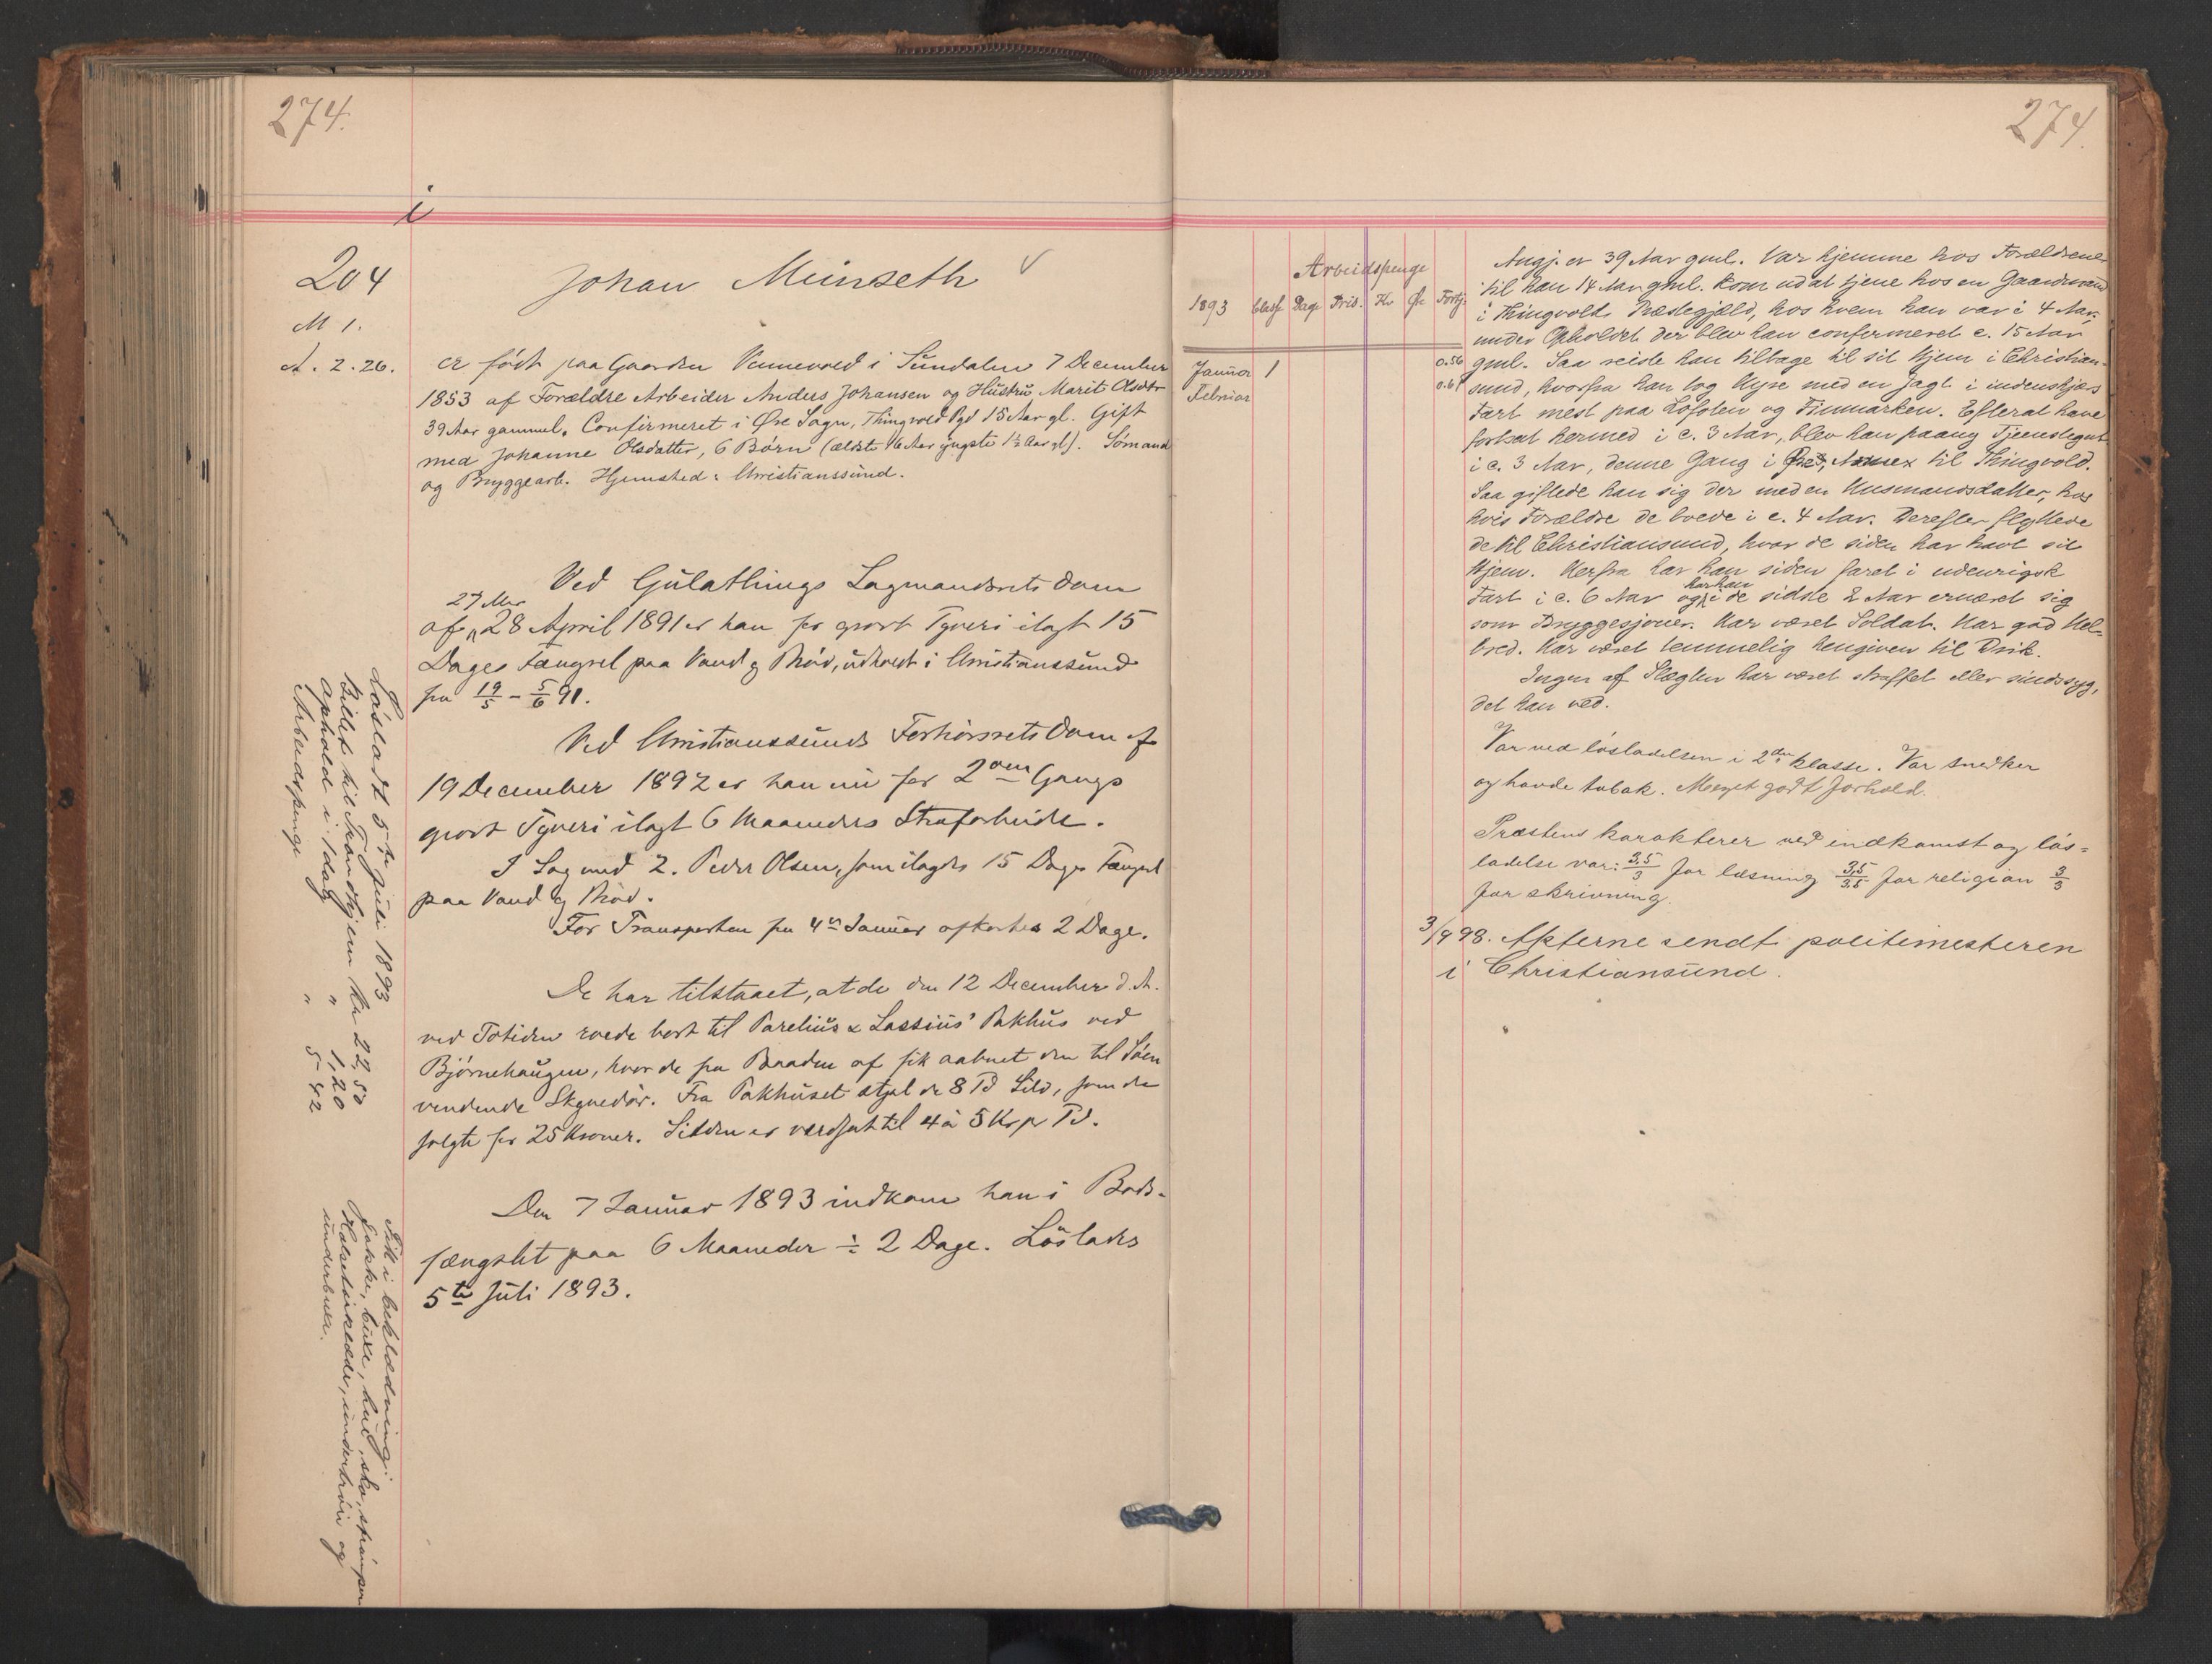 274.
i
204
M 1.
A. 2. 26.
Johan Meinseth
er født paa Gaarden Vennevold i Sundalen 7 December
1853 af Forældre Arbeider Anders Johansen og Hustru Marit Olsdtr
39 Aar gammel. Confirmeret i Øre Sogn, Thingvold Pgd 15 Aar gl. Gift
med Johanne Olsdatter, 6 Børn (ældste 16 Aar yngste 1½ Aar gl). Sømand
og Bryggearb. Hjemsted: Christianssund.
Ved Gulathings Lagmandsrets Dom
27 Mar
af 28 April 1891 er han for grovt Tyveri ilagt 15
Dages Fængsel paa Vand og Brød, udstaaet i Christianssund
fra 19/5 - 5/6 91.
Ved Christianssunds Forhørsrets Dom af
19 December 1892 er han nu for 2den Gangs
grovt Tyveri ilagt 6 Maaneders Strafarbeide.
I Sag med 2. Peder Olsen, som ilagdes 15 Dages Fængsel
paa Vand og Brød.
For Transporten fra 4de Januar afkortes 2 Dage.
De har tilstaaet, at de den 12 December d. A.
ved Totiden roede bort til Parelius & Lassius' Pakhus ved
Bjørnehaugen, hvor de fra Baaden af fik aabnet den til Søen
vendende Skyvedør. Fra Pakhuset stjal de 8 Td Sild, som de
solgte for 25 Kroner. Silden er værdsat til 4 à 5 Kr pr Td.
Den 7 Januar 1893 indkom han i Bods-
fængslet paa 6 Maaneder ÷ 2 Dage. Løslades
5te Juli 1893.
Løsladt 5te juli 1893
Billet til Trondhjem Kr 22,50
ophold i 1 dag " 1,20
Arbeidspenge " 5-42
Fik i beklædning:
Jakke, buxe, hue, sko, strømper
Halstørklæde, undertrøie og
underbuxe.
274.
Arbeidspenge
1893 Classe Dage Pris. Kr Øre Fortj.
Januar 1 0.56
Februar 0.61
Angj. er 39 Aar gml. Var hjemme hos Forældrene
til han 14 Aar gml. kom ud at tjene hos en Gaardmand
i Thingvolds Præstegjæld, hos hvem han var i 4 Aar;
under Opholdet der blev han confirmeret c. 15 Aar
gml. Saa reiste han tilbage til sit Hjem i Christian-
sund, hvorfra han tog Hyre med en Jagt i indenskjærs
Fart mest paa Lofoten og Finmarken. Efterat have
fortsat hermed i c. 3 Aar, blev han paany Tjenestegut
i c. 3 Aar, denne Gang i Øre, Annex til Thingvold.
Saa giftede han sig der med en Husmandsdatter, hos
hvis Forældre de boede i c. 4 Aar. Derefter flyttede
de til Christiansund, hvor de siden har havt sit
Hjem. Herfra har han siden faret i udenrigsk
Fart i c. 6 Aar og har han i de sidste 2 Aar ernæret sig
som Bryggesjouer. Har været Soldat. Har god Hel-
bred. Har været temmelig hengiven til Drik.
Ingen af Slægten har været straffet eller sindssyg,
det han ved.
Var ved løsladelsen i 2den klasse. Var snedker
og havde tobak. Meget godt forhold.
Præstens karakterer ved indkomst og løs=
ladelse var: 3,5/3 for læsning 3,5/3.5 for religion 3/3
for skrivning.
3/9 98. Akterne sendt politimesteren
i Christiansund.